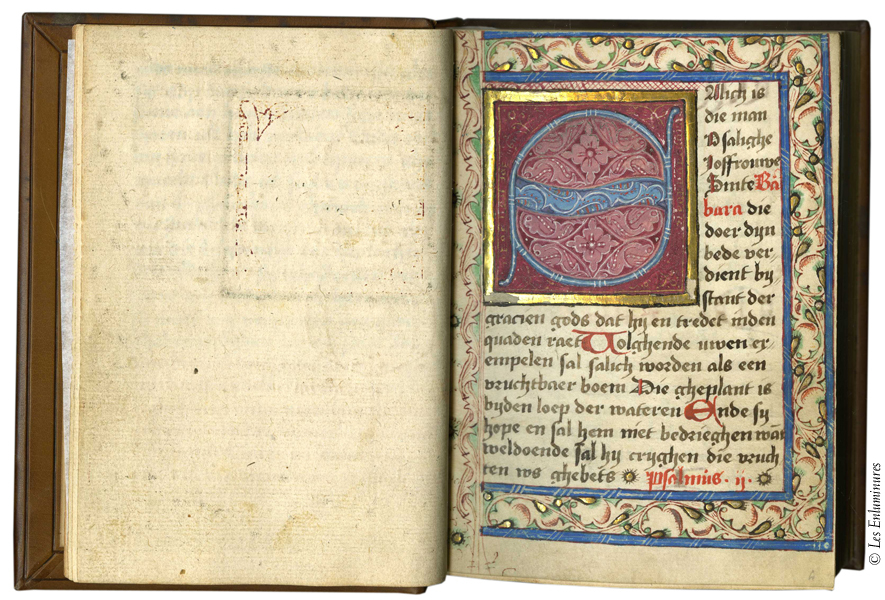 Alich is
die man
O salighe
Joffrouwe
Sinte Bar
bara die
doer dyn
bede ver
dient by
stant der
gracien gods dat hy en tredet inden
quaden raet Volghende uwen ex
empelen sal salich worden als een
vruchtbaer boem Die gheplant is
byden loep der wateren Ende sy
hope en sal hem niet bedrieghen wāt
weldoende sal hy cryghen die vruch
ten ws ghebets Psalmus · ij ·
© Les Enluminures